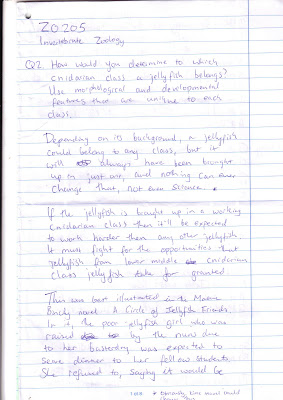 ZO205
Invertebrate Zoology
Q2. How would you determine to which
cnidarian class a jellyfish belongs?
Use morphological and developmental
features that are unique to each
class.
Depending on its background, a jellyfish
could belong to any class, but it
will always have been brought
up in just one, and nothing can ever
change that, not even science. *
If the jellyfish is brought up in a working
cnidarian class then it'll be expected
to work harder than any other jellyfish.
It must fight for the opportunities that
jellyfish from lower middle cnidarian
class jellyfish take for granted.
This was best illustrated in the Maeve
Binchy novel A Circle of Jellyfish Friends.
In it, the poor jellyfish girl who was
raised by the nuns due
to her bastardry was expected to
serve dinner to her fellow students.
She refused to, saying it would be